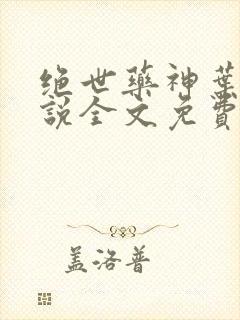 绝世藥神葉
說全文免費
盖洛普